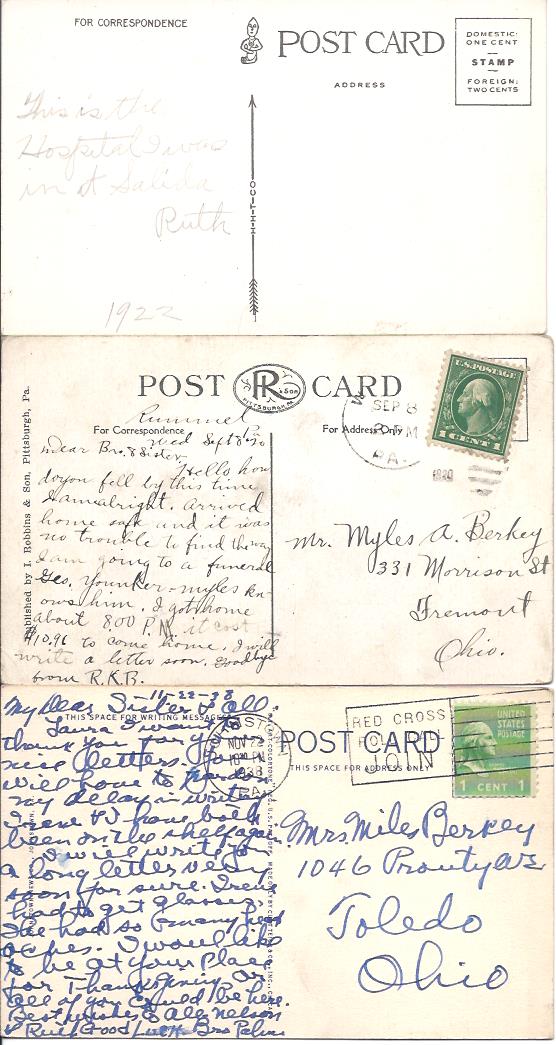 FOR CORRESPONDENCE
POST CARD
DOMESTIC:
ONE CENT
STAMP
FOREIGN:
TWO CENTS
ADDRESS
This is the
Hospital I was
in at Salida
Ruth
1922
H-H-T-CO
POST CARD
R & SON
PITTSBURGH, PA.
Published by I. Robbins & Son, Pittsburgh, Pa.
For Correspondence
For Address Only
Rummel
Wed Sept 8
Dear Bro. & Sister
Hello how
do you fell by this time
I am alright. arrived
home safe and it was
no trouble to find the way
I am going to a funeral
Geo. Younker - myles kn-
ows him. I got home
about 8.00 P.M. it cost
$10.96 to come home. I will
write a letter soon. Goodbye
from R.K.B.
SEP 8
PM
PA.
1920
U.S. POSTAGE
1 CENT 1
Mr. Myles A. Berkey
331 Morrison St
Fremont
Ohio.
11-22-38
My Dear Sister & all
THIS SPACE FOR WRITING MESSAGES
Laura I want to
thank you for your
nice letters. You
will have to pardon
my delay in writing
Irene & I have both
been on the shelf again
I will write you
a long letter very
soon for sure. Irene
had to get glasses.
She had so many head
aches. I would like
to be at your place
for Thanksgiving or
all of you could be here.
Best wishes to Alex Nelson
& Ruth Good Luck Bro Palmer
NOV 22
PM
1938
PA.
RED CROSS
ROLL CALL
JOIN
POST CARD
THIS SPACE FOR ADDRESS ONLY
UNITED
STATES
POSTAGE
1 CENT 1
Mrs. Miles Berkey
1046 Prouty ave
Toledo
Ohio